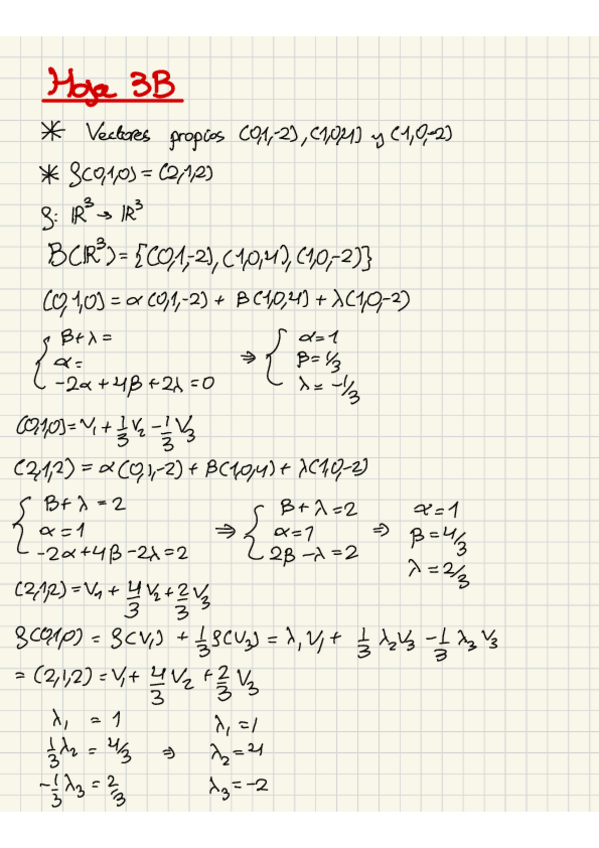 Hoja 3B
* Vectores propios (0,1,-2), (1,0,4) y (1,0,-2)
* f(0,1,0) = (2,1,2)
f: ℝ³ → ℝ³
B(ℝ³) = {(0,1,-2), (1,0,4), (1,0,-2)}
(0,1,0) = α(0,1,-2) + β(1,0,4) + λ(1,0,-2)
{ β+λ = ⇒ { α=1
α= β=1/3
-2α+4β+2λ=0 λ=-1/3
(0,1,0) = v₁ + 1/3 v₂ - 1/3 v₃
(2,1,2) = α(0,1,-2) + β(1,0,4) + λ(1,0,-2)
{ β+λ = 2 ⇒ { β+λ=2 ⇒ α=1
α=1 α=1 β=4/3
-2α+4β-2λ=2 2β-λ=2 λ=2/3
(2,1,2) = v₁ + 4/3 v₂ + 2/3 v₃
f(0,1,0) = f(v₁) + 1/3 f(v₃) = λ₁v₁ + 1/3 λ₂v₃ - 1/3 λ₃ v₃
= (2,1,2) = v₁ + 4/3 v₂ + 2/3 v₃
λ₁ = 1 λ₁=1
1/3 λ₂ = 4/3 ⇒ λ₂=4
-1/3 λ₃ = 2/3 λ₃=-2